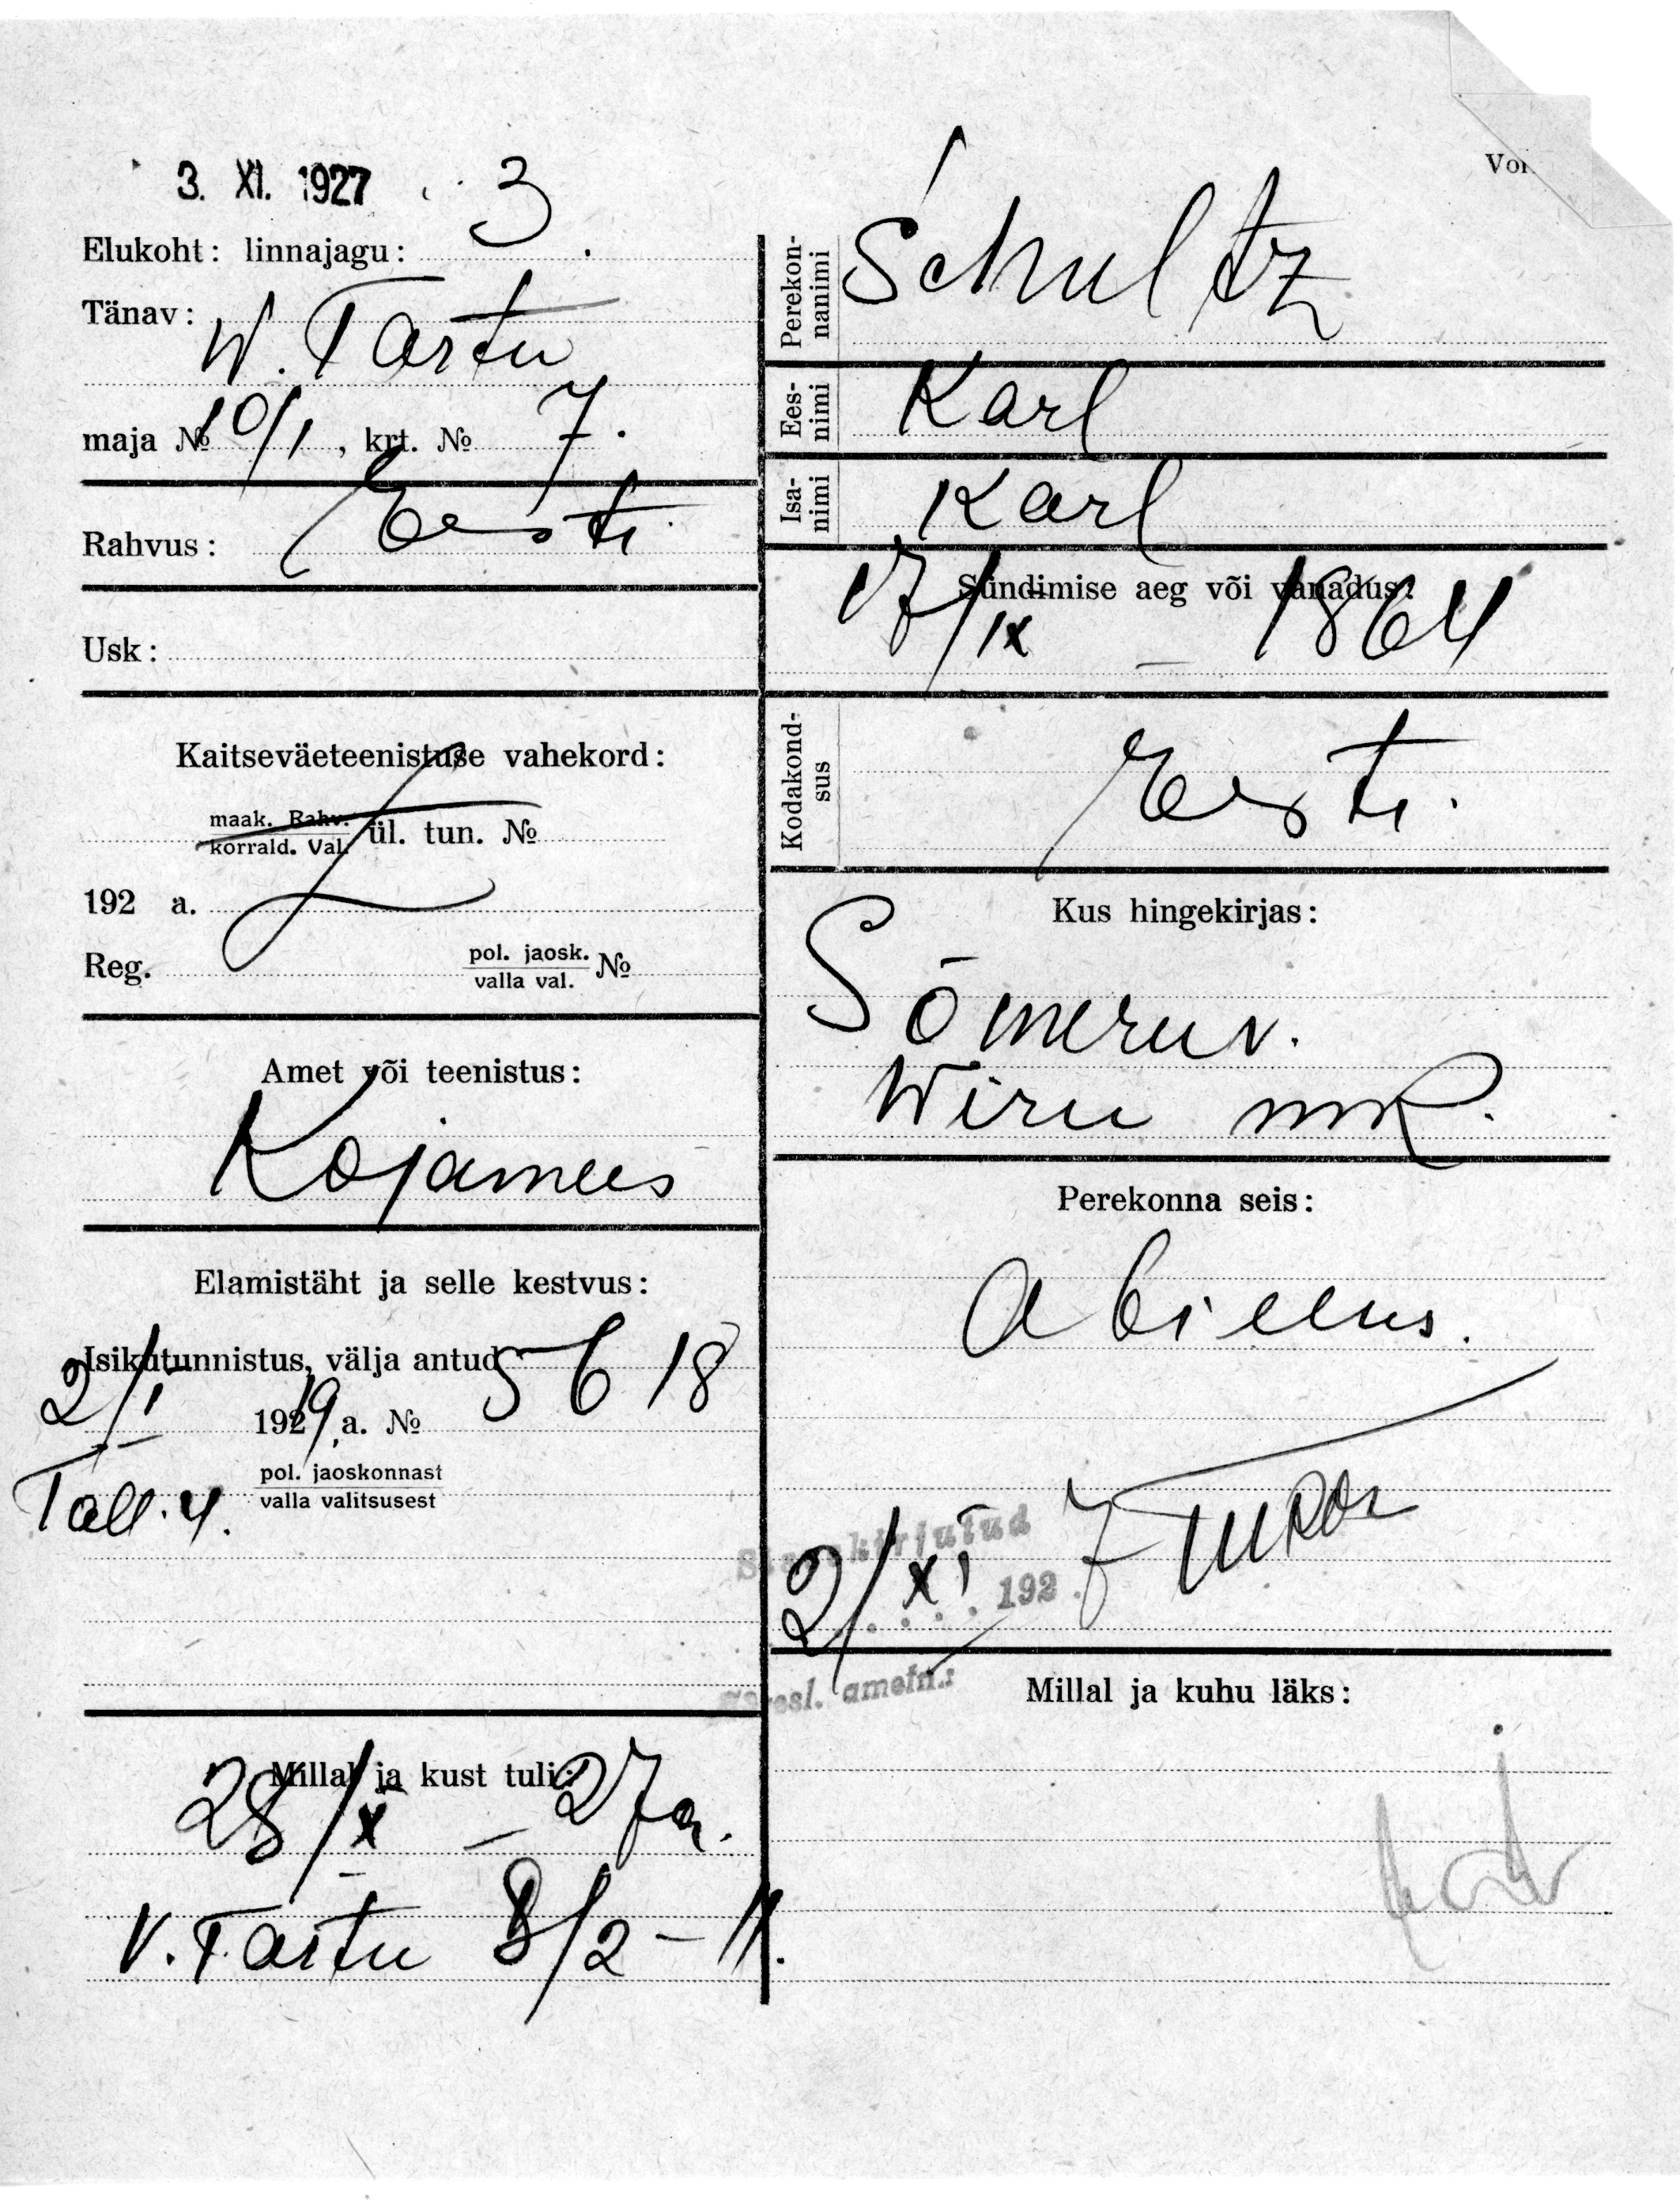 3. XI. 1927
Elukoht: linnajagu: 3.
Tänav: W. Tartu
maja № 10/1, krt. № 7.
Rahvus: Eesti
Usk:
Kaitseväeteenistuse vahekord:
maak. Rahv.
korrald. Val. ül. tun. №
192 a.
Reg. pol. jaosk. №
valla val.
Amet või teenistus:
Kojamees
Elamistäht ja selle kestvus:
Isikutunnistus, välja antud
2/I 1919 a. № 5618
Tall. 4. pol. jaoskonnast
valla valitsusest
Millal ja kust tuli:
28/X – 27 a.
V. Tartu 8/2 – 11.
Perekon-
nanimi Schultz
Ees-
nimi Karl
Isa-
nimi Karl
Sündimise aeg või vanadus:
17/IX – 1864
Kodakond-
sus Eesti.
Kus hingekirjas:
Sõmeru v.
Wiru mk.
Perekonna seis:
Abielus.
Sissekirjutud
2/XI 192
ametn.:
Millal ja kuhu läks: